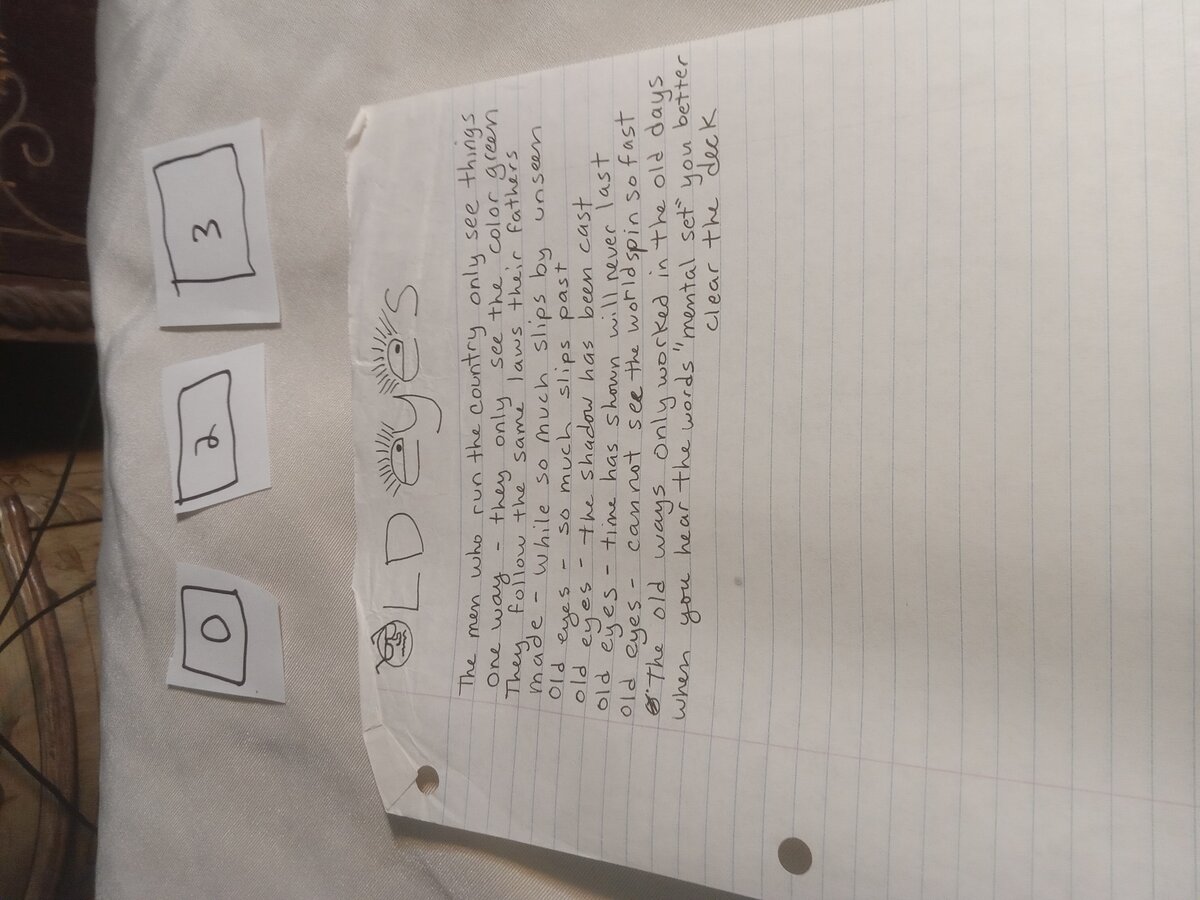 0 2 3
OLD eyes
The men who run the country only see things
one way - they only see the color green
They follow the same laws their fathers
made - while so much slips by unseen
Old eyes - so much slips past
old eyes - the shadow has been cast
old eyes - time has shown will never last
old eyes - cannot see the world spin so fast
The old ways only worked in the old days
when you hear the words "mental set" you better
clear the deck